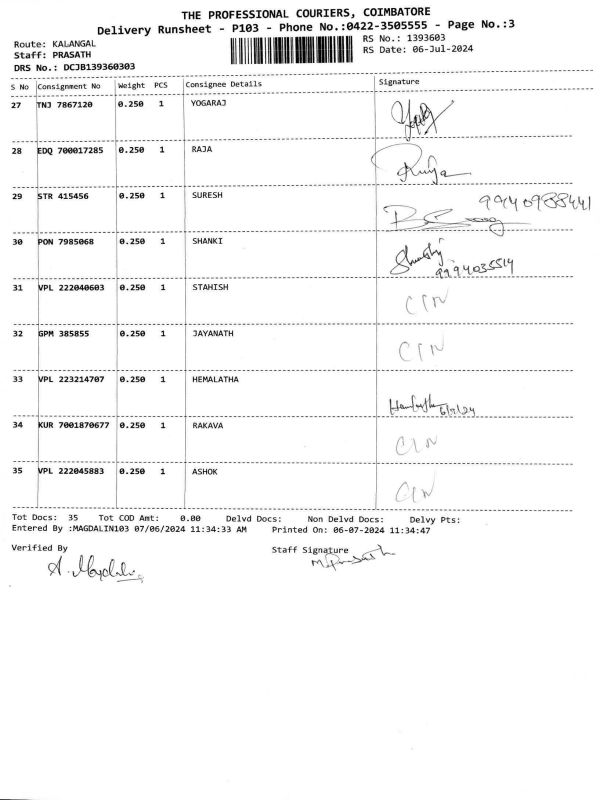 THE PROFESSIONAL COURIERS, COIMBATORE
Delivery Runsheet - P103 - Phone No.:0422-3505555 - Page No.:3
Route: KALANGAL
Staff: PRASATH
DRS No.: DCJB139360303
RS No.: 1393603
RS Date: 06-Jul-2024
S No Consignment No Weight PCS Consignee Details Signature
27 TNJ 7867120 0.250 1 YOGARAJ
28 EDQ 700017285 0.250 1 RAJA
29 STR 415456 0.250 1 SURESH 9940988441
30 PON 7985068 0.250 1 SHANKI
9994035514
31 VPL 222040603 0.250 1 STAHISH
32 GPM 385855 0.250 1 JAYANATH
33 VPL 223214707 0.250 1 HEMALATHA
34 KUR 7001870677 0.250 1 RAKAVA
35 VPL 222045883 0.250 1 ASHOK
Tot Docs: 35 Tot COD Amt: 0.00 Delvd Docs: Non Delvd Docs: Delvy Pts:
Entered By :MAGDALIN103 07/06/2024 11:34:33 AM Printed On: 06-07-2024 11:34:47
Verified By Staff Signature
A. Magdalin M. Prasath